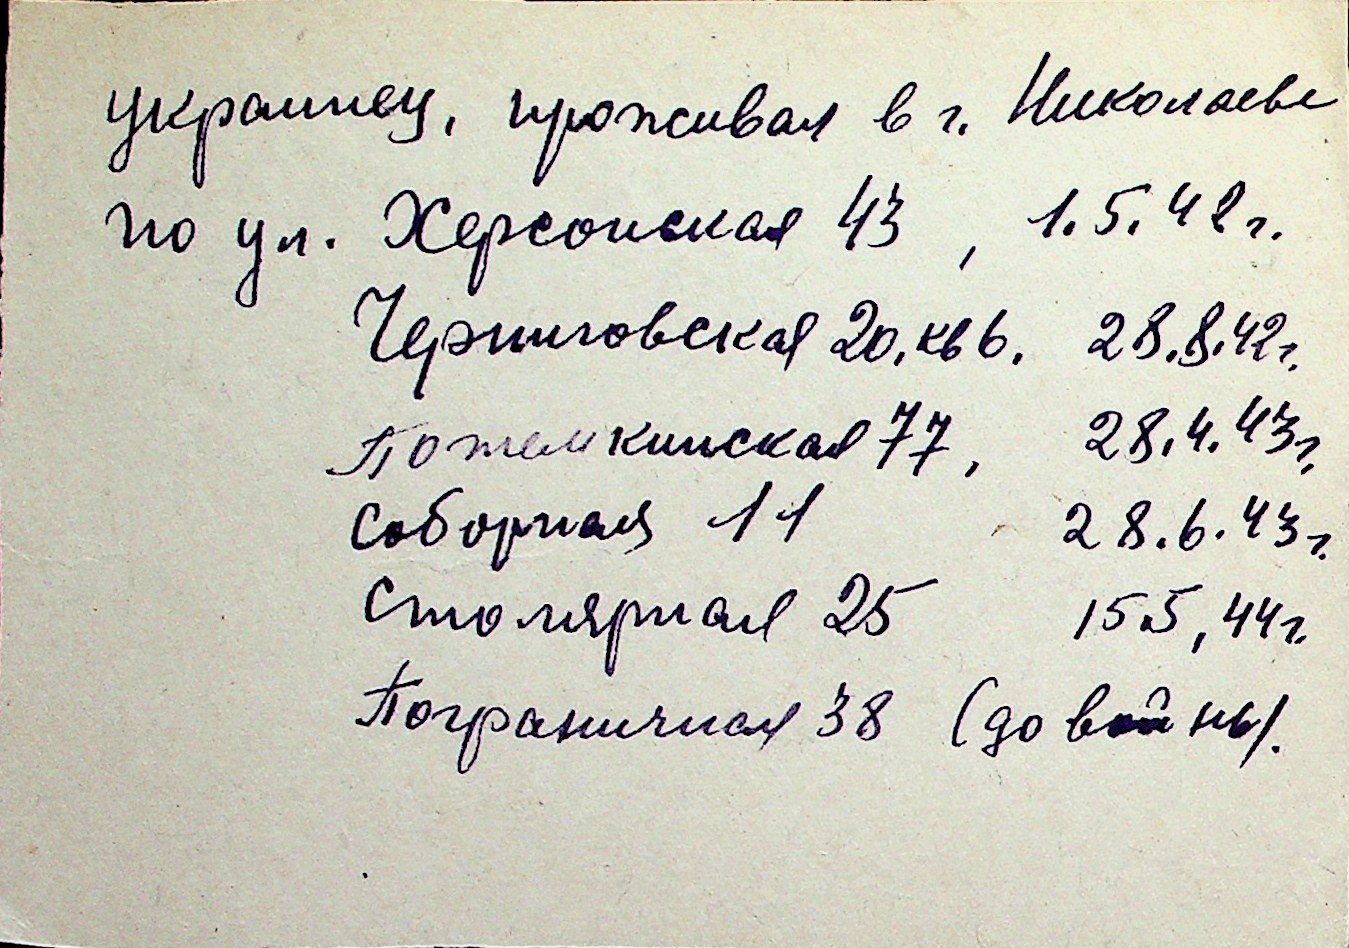 украинец, проживал в г. Николаеве
по ул. Херсонская 43, 1.5.42 г.
Черниговская 20.кв 6. 28.8.42 г.
Потемкинская 77, 28.4.43 г.
Соборная 11 28.6.43 г.
Столярная 25 15.5,44 г.
Пограничная 38 (до войны).